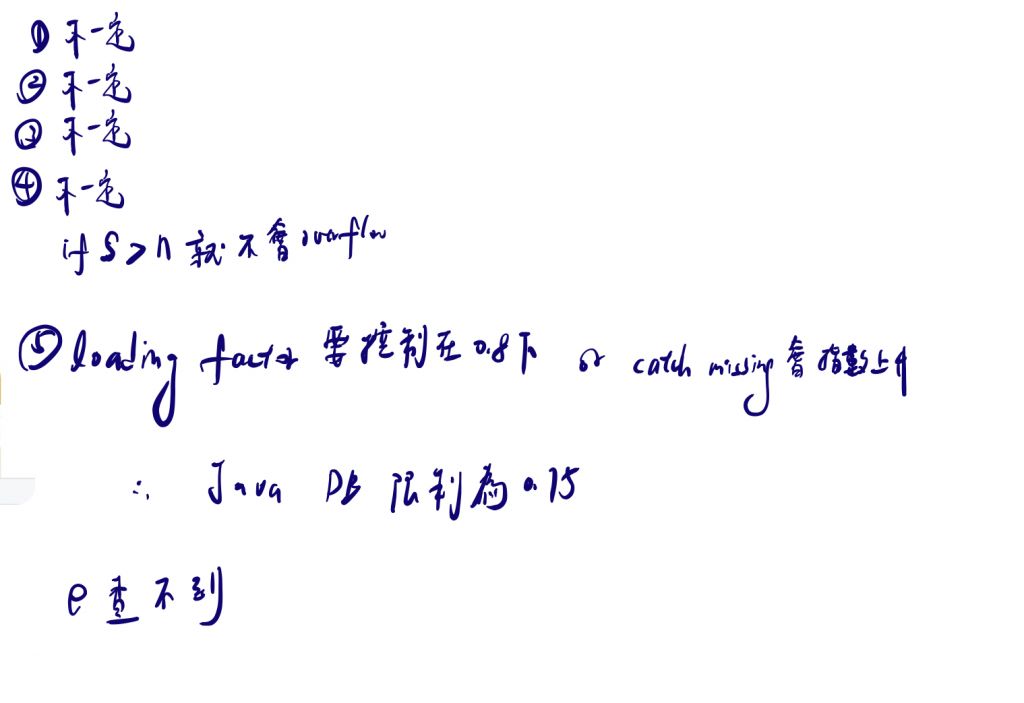 ① 不一定
② 不一定
③ 不一定
④ 不一定
if S > n 就不會 overflow
⑤ loading factor 要控制在 0.8下 or catch missing 會指數上升
∴ Java DB 限制為 0.75
e 查不到